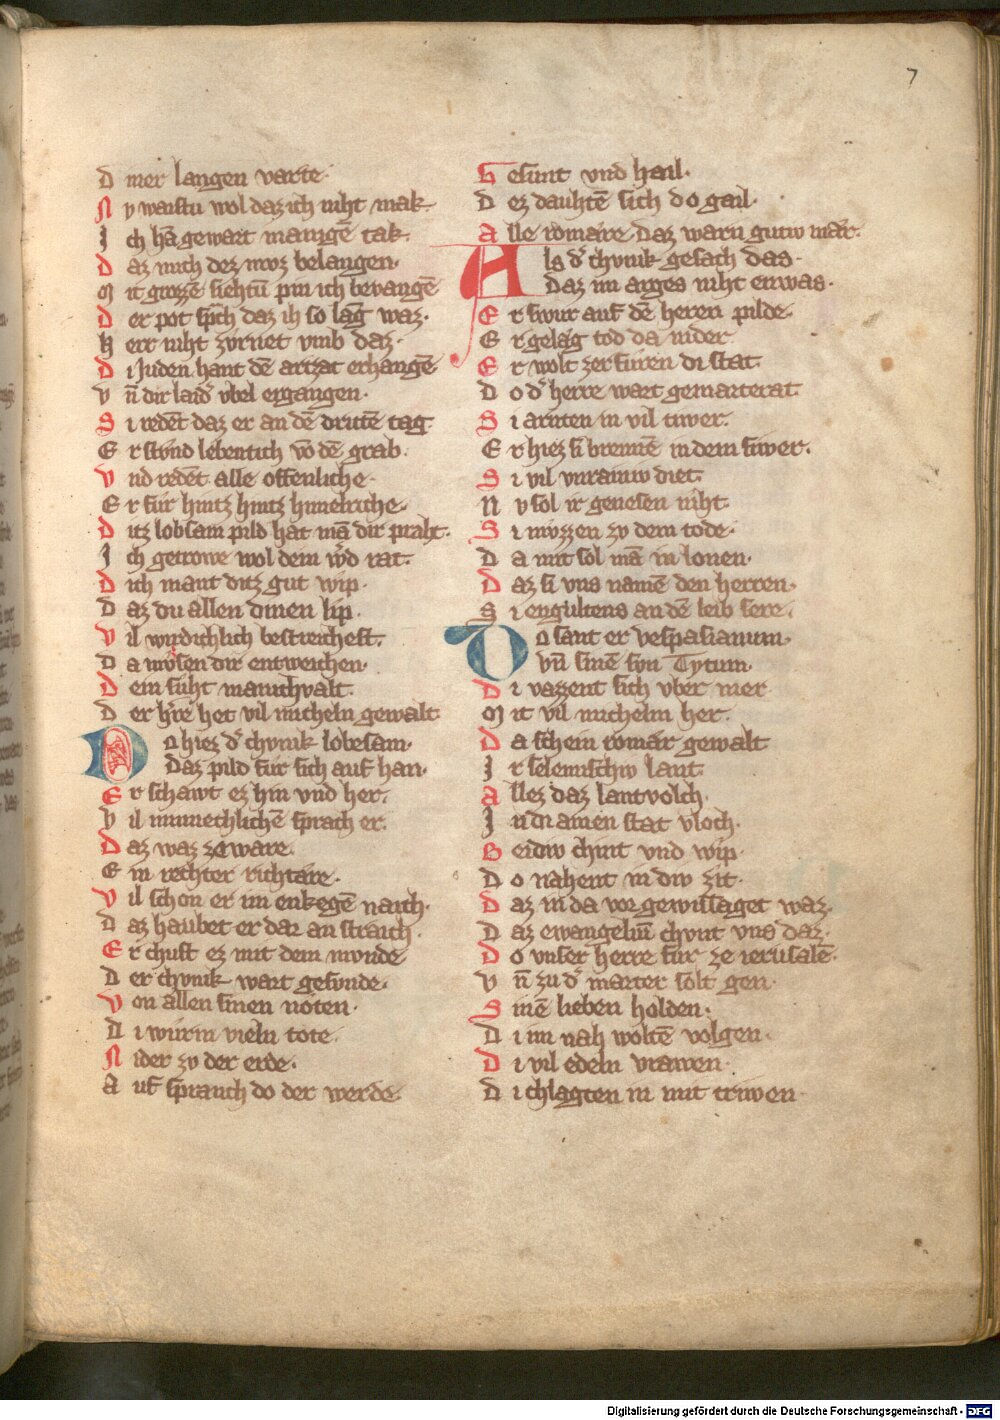 7
D iner langen varte·
N v waistu wol daz ich niht mak·
I ch hā gewart manigē tak·
D az mich dez moz belangen·
M it grozzē siehtū pin ich bevangē
D er pot sp̄ch daz ih so lāg waz·
H err niht zvrnet vmb daz·
D i Juden hant dē artzat erhangē
V n̄ dir laid᷑ vbel ergangen·
S i redēt daz er an dē drittē tag
E r stvnd lebentich vō dē grab·
V nd redēt alle offenliche·
E r fůr hintz hintz himelriche·
D itz lobsam pild hat mā dir praht·
I ch getrowe wol dem w᷑d rat·
D ich mant ditz gut wip·
D az du allen dinen lip·
V il wirdichlich bestreichest·
D a mvsen dir entweichen·
D ein suht manichvalt·
D er h᷑re het vil micheln gewalt
D o hiez d᷑ chvnik lobesam·
Daz pild fur sich auf han·
E r schawt ez hin vnd her·
V il minnechlichē sprach er·
D az waz zeware·
E in rechter richtåre·
V il schon er im enkegē naich·
D az haubet er dar an straich·
E r chust ez mit dem mvnde
D er chvnik wart gesvnde·
V on allen sinen nöten·
D i wůrm vieln tote·
N ider zv der erde·
A uf sprauch do der werde·
G esunt vnd hail·
D ez dauhtē sich do gail·
A lle römåre daz warn gutiv mår·
A ls d᷑ chvnik gesach das·
Daz im arges niht enwas·
E r swur auf dē heren pilde·
E r gelåg tod da nider
E r wolt zerfůren di stat
D o d᷑ herre wart gemarterat
S i arnten in vil tiwer·
E r hiez si brennē in dem fiwer·
S i vil vnrainiv diet·
N v sol ir genesen niht·
S i mvzzen zv dem tode·
D a mit sol mā in lonen·
D az si vns namē den herren·
S i engultens an dē leib sere·
D o sant er vespasianum·
vn̄ sinē svn Tytum·
D i vazzent sich vber mer
M it vil michelm her·
D a schein römår gewalt
I r selemischiv lant·
A llez daz lantvolch·
I n di amen stat vloch·
B eidiv chint vnd wip·
D o nahent in div zit·
D az in da vor gewissaget waz·
D az ewangeliū chvnt vns daz·
D o vnser herre fur ze ierusalē·
V n̄ zu d᷑ marter solt gen·
S inē lieben holden·
D i im nah woltē volgen·
D i vil edeln vrawen·
D i chlagten in mit triwen·
Digitalisierung gefördert durch die Deutsche Forschungsgemeinschaft - DFG